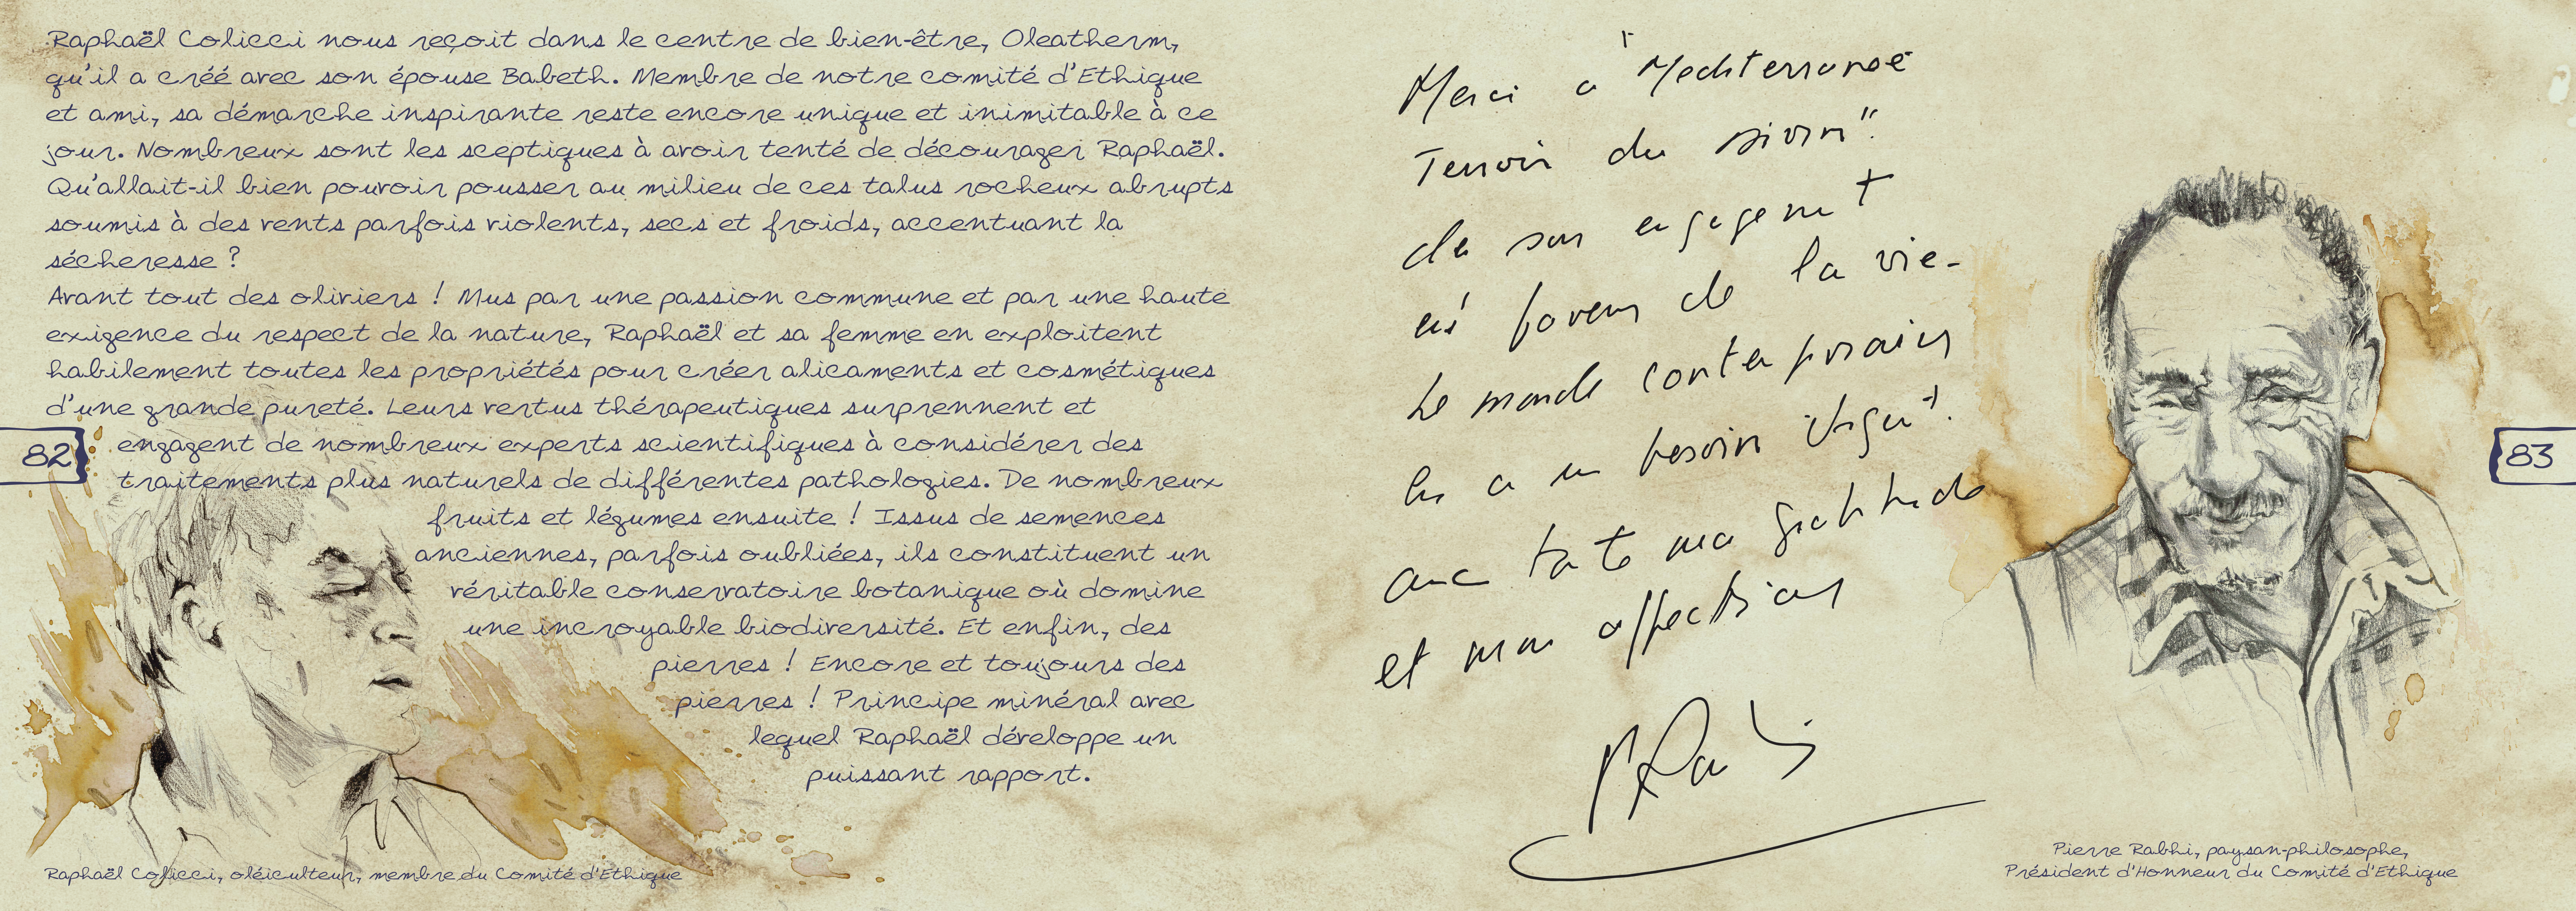 Raphaël Colicci nous reçoit dans le centre de bien-être, Oleatherm,
qu'il a créé avec son épouse Babeth. Membre de notre comité d'Ethique
et ami, sa démarche inspirante reste encore unique et inimitable à ce
jour. Nombreux sont les sceptiques à avoir tenté de décourager Raphaël.
Qu'allait-il bien pouvoir pousser au milieu de ces talus rocheux abrupts
soumis à des vents parfois violents, secs et froids, accentuant la
sécheresse ?
Avant tout des oliviers ! Mus par une passion commune et par une haute
exigence du respect de la nature, Raphaël et sa femme en exploitent
habilement toutes les propriétés pour créer alicaments et cosmétiques
d'une grande pureté. Leurs vertus thérapeutiques surprennent et
engagent de nombreux experts scientifiques à considérer des
traitements plus naturels de différentes pathologies. De nombreux
fruits et légumes ensuite ! Issus de semences
anciennes, parfois oubliées, ils constituent un
véritable conservatoire botanique où domine
une incroyable biodiversité. Et enfin, des
pierres ! Encore et toujours des
pierres ! Principe minéral avec
lequel Raphaël développe un
puissant rapport.
82
Raphaël Colicci, oléiculteur, membre du Comité d'Ethique
Merci a "Mediterranée
Terroir du vivan"
de son engagement
en faveur de la vie-
Le monde contemporain
en a un besoin urgent.
avec toute ma gratitude
et mon affection
PRabhi
83
Pierre Rabhi, paysan-philosophe,
Président d'Honneur du Comité d'Ethique